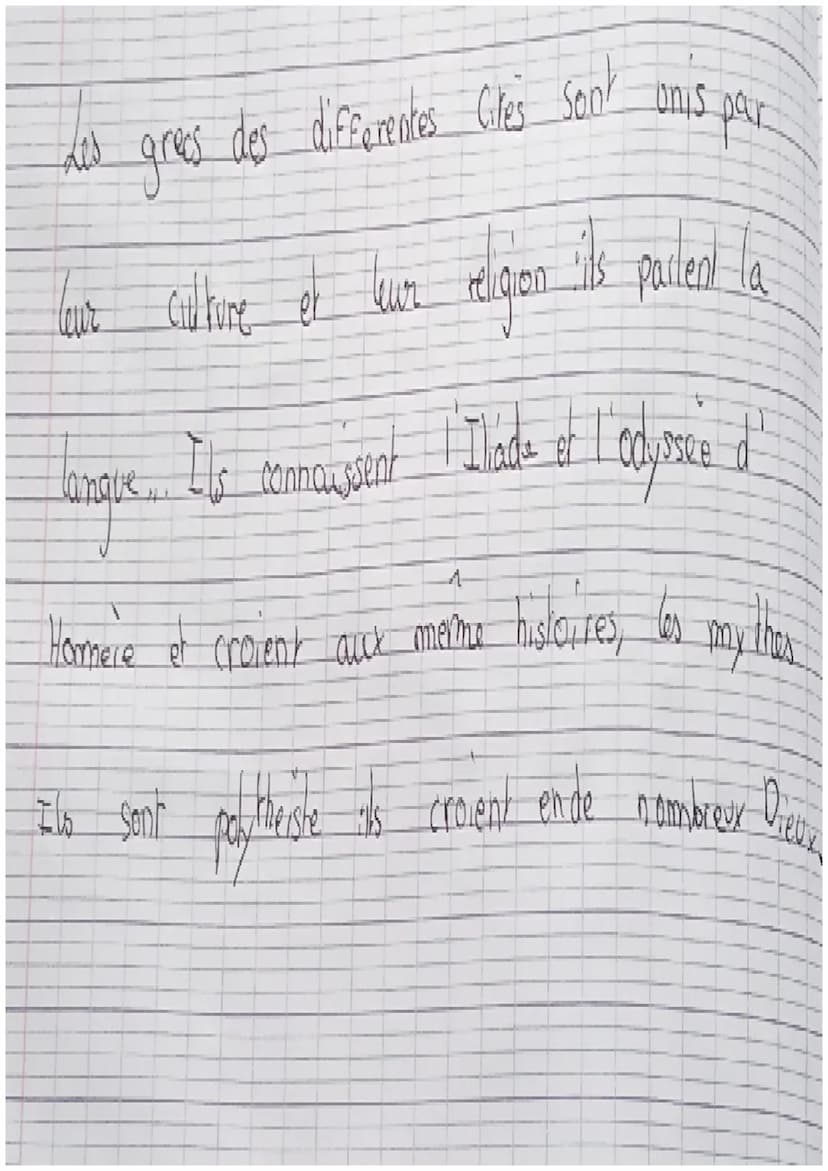 Les grecs des differentes Cités sont unis par
leur culture et leur religion ils parlent la
langue... Ils connaissent l'Iliade et l'odyssée d'
Homère et croient aux même histoires, les mythes
Ils sont polytheiste ils croient en de nombreux Dieux